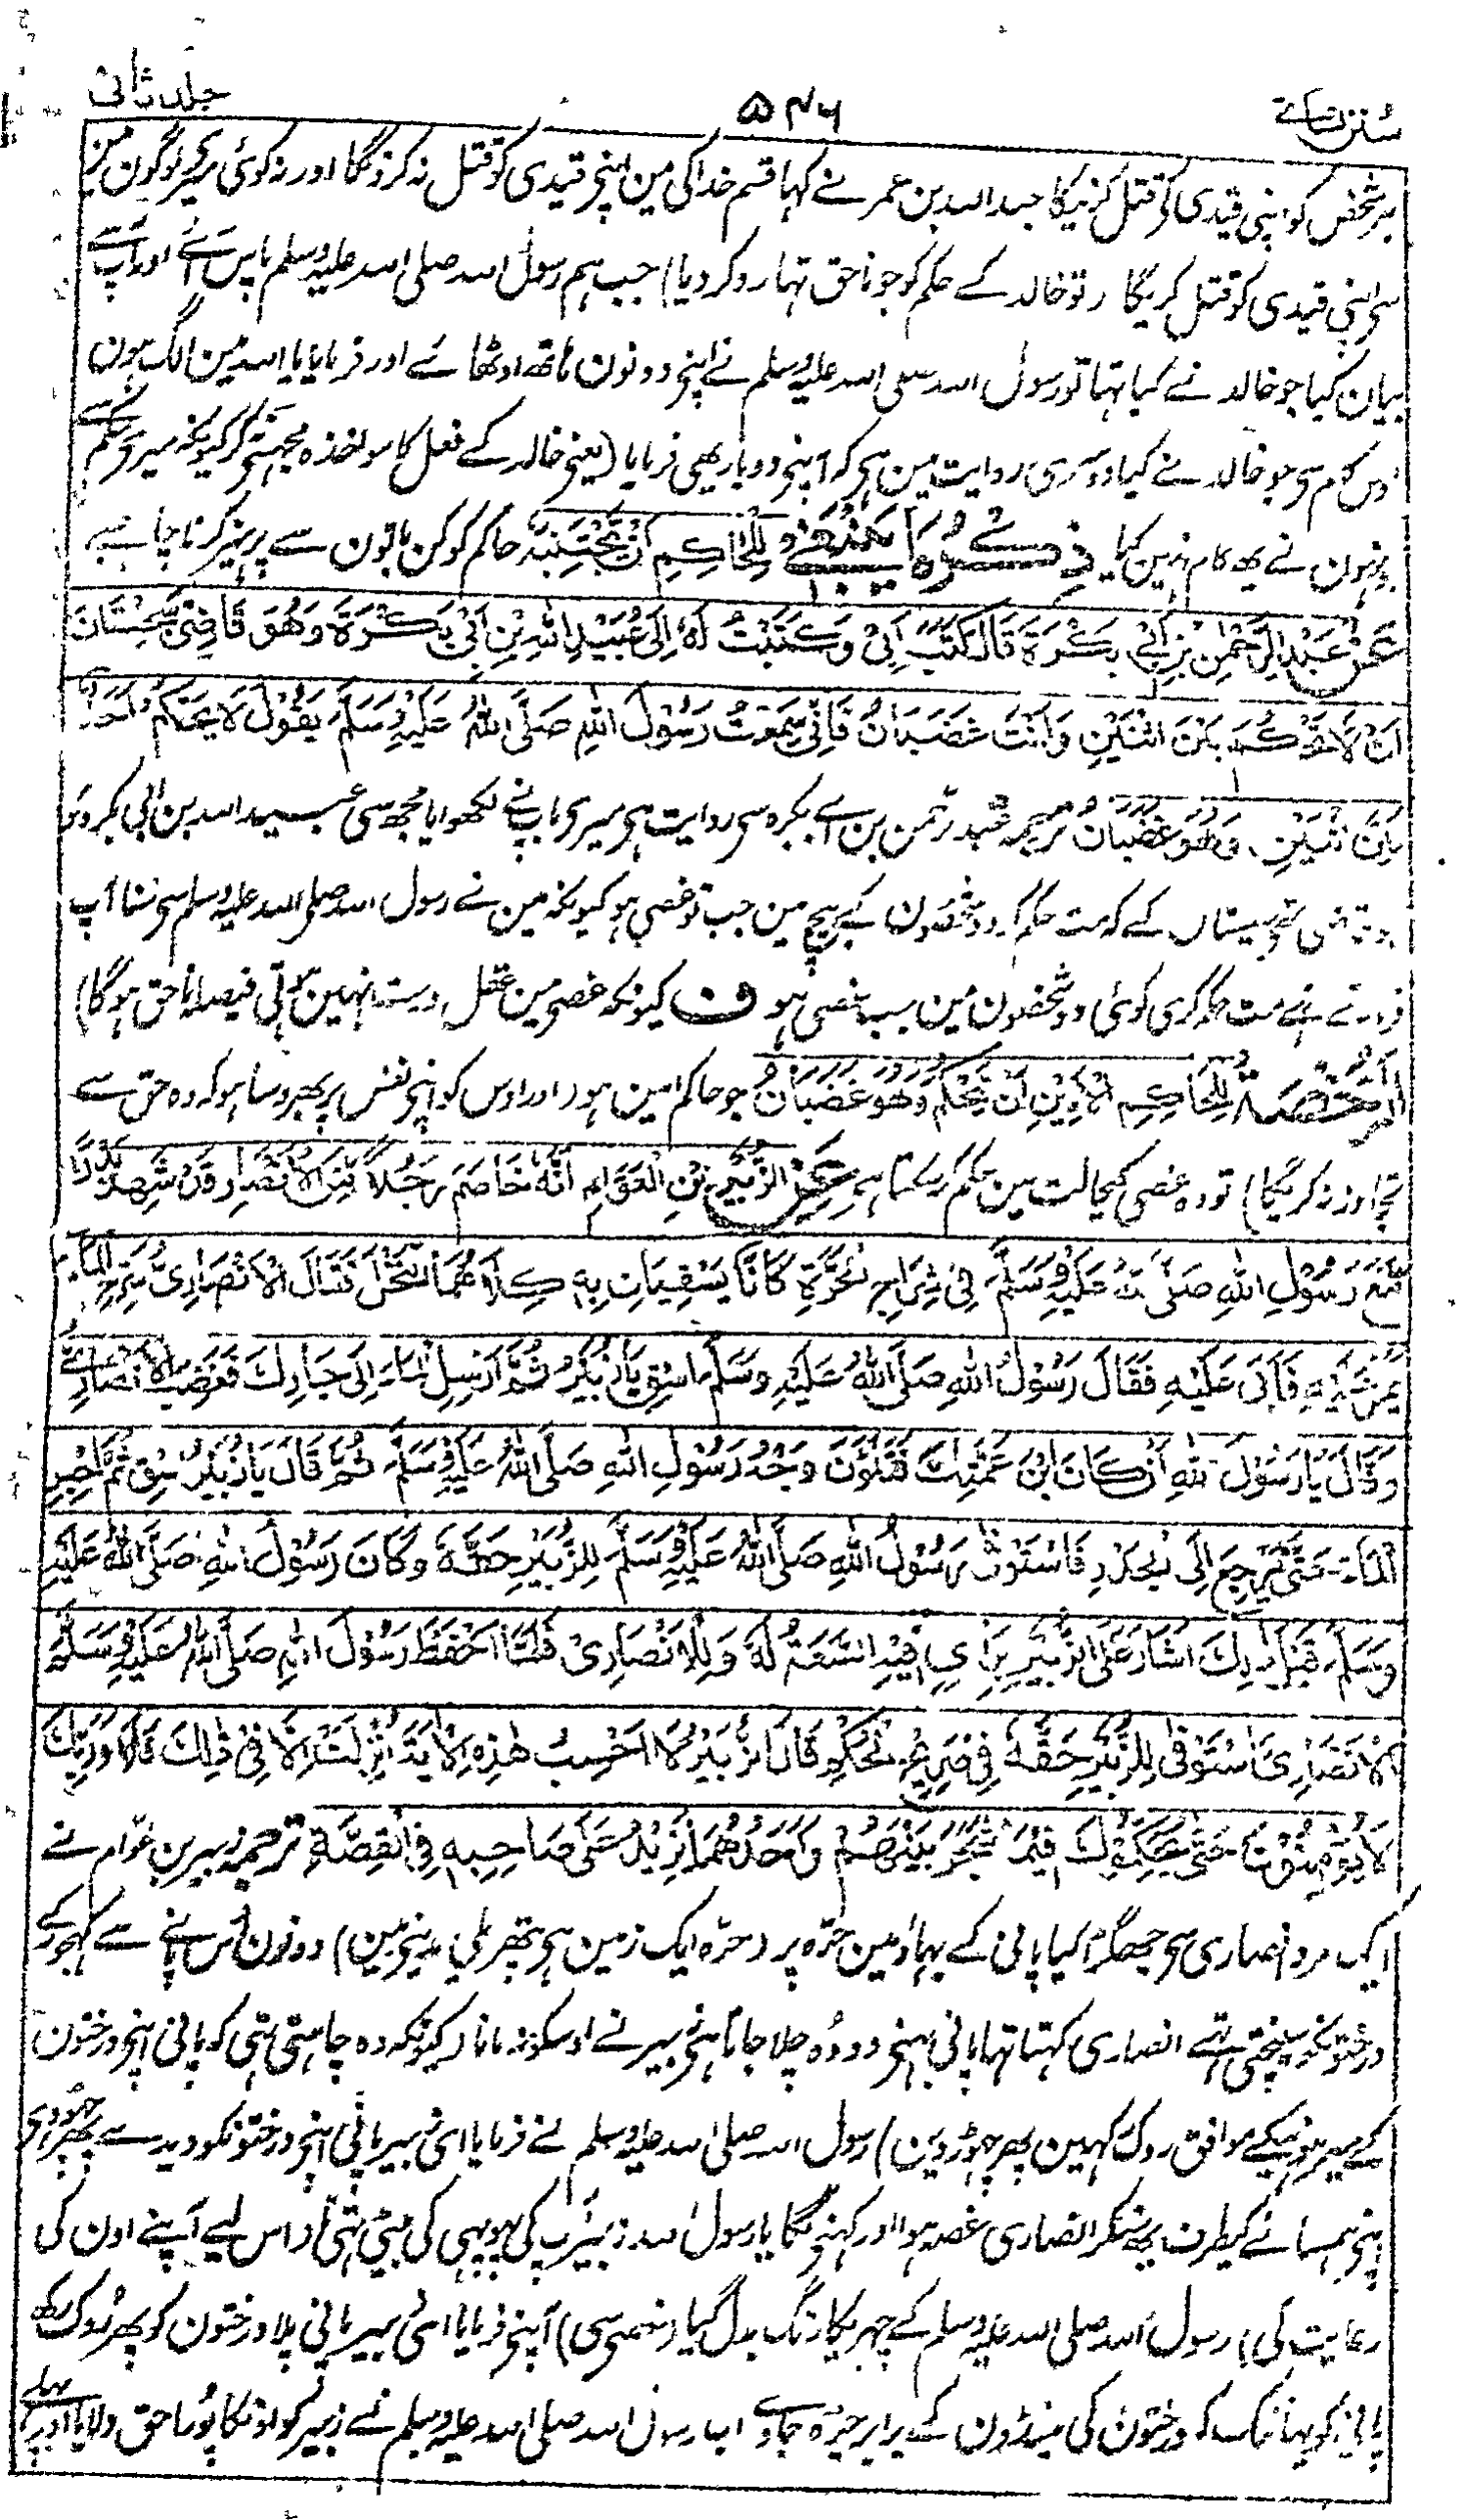 سنن نسائے ۵۴۶ جلد ثانی
ہر شخص کو اپنی قیدی کو قتل کرنیکا عبد اللہ بن عمر نے کہا قسم خدا کی مین اپنی قیدی کو قتل نہ کرونگا اور نہ کوئی میری لوگون مین
سی اپنی قیدی کو قتل کریگا (تو خالد کے حکم کو جو ناحق تہا رد کر دیا) جب ہم رسول اللہ صلی اللہ علیہ وسلم پاس آئے اور آپ سے
بیان کیا جو خالد نے کیا تہا تو رسول اللہ صلی اللہ علیہ وسلم نے اپنی دونون ہاتھ اوٹھائے اور فرمایا یا اللہ مین الگ ہون
اوس کام سی جو خالد نے کیا دوسری روایت مین ہی کہ آپنی دو بار یہی فرمایا (یعنی خالد کے فعل کا مواخذہ مجہسی نکر کیونکہ میری حکم سے
اونہون نے یہ کام نہین کیا ذِكْرُ مَا يَنْبَغِي لِلْحَاكِمِ أَنْ يَجْتَنِبَهُ حاکم کو کن باتون سے پرہیز کرنا چاہیے
عَنْ عَبْدِ الرَّحْمٰنِ بْنِ أَبِي بَكْرَةَ قَالَ كَتَبَ أَبِي وَكَتَبْتُ لَهُ إِلَى عُبَيْدِ اللهِ بْنِ أَبِي بَكْرَةَ وَهُوَ قَاضِي سِجِسْتَانَ
أَنْ لَا تَحْكُمَ بَيْنَ اثْنَيْنِ وَأَنْتَ غَضْبَانُ فَإِنِّي سَمِعْتُ رَسُوْلَ اللهِ صَلَّى اللهُ عَلَيْهِ وَسَلَّمَ يَقُوْلُ لَا يَحْكُمْ أَحَدٌ
بَيْنَ اثْنَيْنِ وَهُوَ غَضْبَانُ ترجمہ عبد رحمن بن ابے بکرہ سی روایت ہی میری باپنے لکھوایا مجھ سی عبید اللہ بن ابی بکرہ کو
وہ قاضی تھے سیستان کے کہ مت حکم کر دو شخصون کے بیچ مین جب تو غصی ہو کیونکہ مین نے رسول اللہ صلی اللہ علیہ وسلم سی سنا آپ
فرماتے تھے مت حکم کری کوئی دو شخصون مین جب غصی ہو ف کیونکہ غصی مین عقل درست نہین ہوتی فیصلہ ناحق ہوگا)
الرُّخْصَةُ لِلْحَاكِمِ الْأَمِيْنِ أَنْ يَحْكُمَ وَهُوَ غَضْبَانُ جو حاکم امین ہو (اور اوس کو اپنی نفس پر بھروسا ہو کہ وہ حق سے
تجاوز نہ کریگا) تو وہ غصی کیحالت مین حکم کر سکتا ہی عَنِ الزُّبَيْرِ بْنِ الْعَوَّامِ أَنَّهُ خَاصَمَ رَجُلًا مِنَ الْأَنْصَارِ قَدْ شَهِدَ بَدْرًا
مَعَ رَسُوْلِ اللهِ صَلَّى اللهُ عَلَيْهِ وَسَلَّمَ فِيْ شِرَاجِ الْحَرَّةِ كَانَا يَسْقِيَانِ بِهِ كِلَاهُمَا النَّخْلَ فَقَالَ الْأَنْصَارِيُّ سَرِّحِ الْمَاءَ
يَمُرُّ عَلَيْهِ فَأَبَى عَلَيْهِ فَقَالَ رَسُوْلُ اللهِ صَلَّى اللهُ عَلَيْهِ وَسَلَّمَ اسْقِ يَا زُبَيْرُ ثُمَّ أَرْسِلِ الْمَاءَ إِلَى جَارِكَ فَغَضِبَ الْأَنْصَارِيُّ
وَقَالَ يَا رَسُوْلَ اللهِ أَنْ كَانَ ابْنَ عَمَّتِكَ فَتَلَوَّنَ وَجْهُ رَسُوْلِ اللهِ صَلَّى اللهُ عَلَيْهِ وَسَلَّمَ ثُمَّ قَالَ يَا زُبَيْرُ اسْقِ ثُمَّ احْبِسِ
الْمَاءَ حَتَّى يَرْجِعَ إِلَى الْجَدْرِ فَاسْتَوْفَى رَسُوْلُ اللهِ صَلَّى اللهُ عَلَيْهِ وَسَلَّمَ لِلزُّبَيْرِ حَقَّهُ وَكَانَ رَسُوْلُ اللهِ صَلَّى اللهُ عَلَيْهِ
وَسَلَّمَ قَبْلَ ذٰلِكَ أَشَارَ عَلَى الزُّبَيْرِ بِرَأْيٍ فِيْهِ السَّعَةُ لَهُ وَلِلْأَنْصَارِيِّ فَلَمَّا أَحْفَظَ رَسُوْلَ اللهِ صَلَّى اللهُ عَلَيْهِ وَسَلَّمَ
الْأَنْصَارِيُّ اسْتَوْفَى لِلزُّبَيْرِ حَقَّهُ فِيْ صَرِيْحِ الْحُكْمِ قَالَ الزُّبَيْرُ لَا أَحْسِبُ هٰذِهِ الْآيَةَ أُنْزِلَتْ إِلَّا فِيْ ذٰلِكَ فَلَا وَرَبِّكَ
لَا يُؤْمِنُوْنَ حَتَّى يُحَكِّمُوْكَ فِيْمَا شَجَرَ بَيْنَهُمْ وَأَحَدُهُمَا يَزِيْدُ عَلَى صَاحِبِهِ فِي الْقِصَّةِ ترجمہ زبیر بن عوام نے
ایک مرد انصاری سی جھگڑا کیا پانی کے بہاؤ مین حرّہ پر (حرّہ ایک زمین ہی پتھریلی مدینی مین) دونون اُس پانے سے کہجور کے
درختونکو سینچتی تہے انصاری کہتا تہا پانی بہنی دو وہ چلا جاتا ہی زبیر نے اوسکو نہ مانا (کیونکہ وہ چاہتی تہی کہ پانی اپنی درختون
کے سیر ہونیکے موافق روک رکہین پھر چہوڑ دین) رسول اللہ صلی اللہ علیہ وسلم نے فرمایا ای زبیر پانی اپنی درختونکو دیدے پھر چھوڑ دی
اپنی ہمسائے کیطرف یہ سنکر انصاری غصہ ہوا اور کہنی لگا یا رسول اللہ زبیر آپ کی پہوپہی کی بیٹی تہی (اس لیے آپنے اون کی
رعایت کی) رسول اللہ صلی اللہ علیہ وسلم کے چہریکا رنگ بدل گیا (غصی سی) آپنی فرمایا ای زبیر پانی پلا درختون کو پھر روک رکھ
پانی کو یہانتک کہ درختون کی مینڈون کے برابر چڑہ جاوے اب رسول اللہ صلی اللہ علیہ وسلم نے زبیر کو اونکا پورا حق دلایا اور پہلے